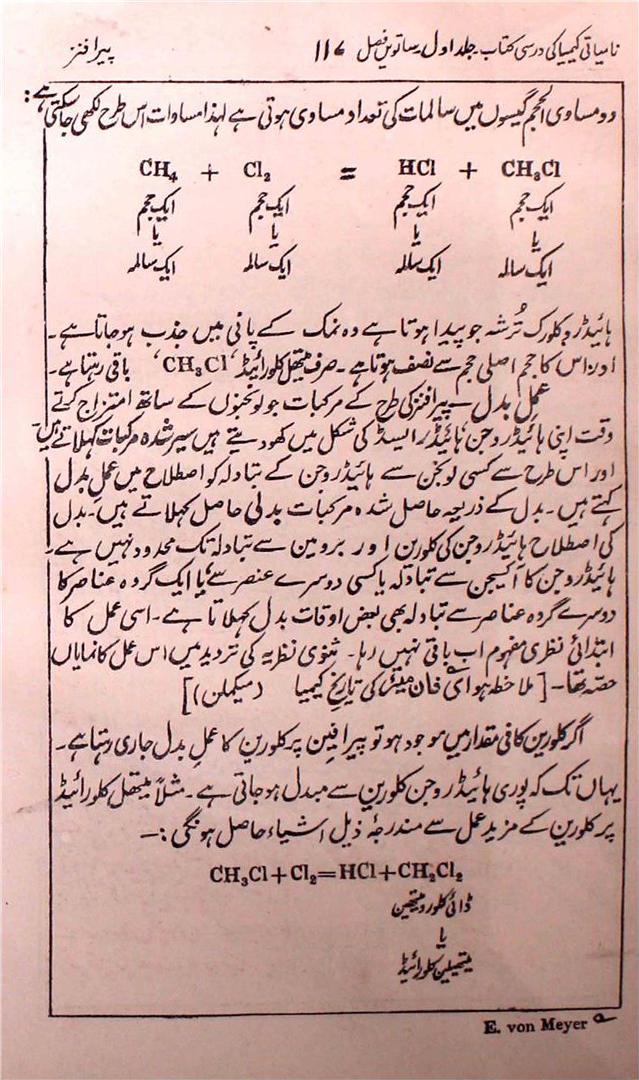 نامیاتی کیمیا کی درسی کتاب۔ جلد اول۔ ساتویں فصل ۱۱۷ پیرافنز
دو مساوی الحجم گیسوں میں سالمات کی تعداد مساوی ہوتی ہے لہٰذا مساوات اس طرح لکھی جاسکتی ہے:
CH₄ + Cl₂ = HCl + CH₃Cl
ایک حجم ایک حجم ایک حجم ایک حجم
یا یا یا یا
ایک سالمہ ایک سالمہ ایک سالمہ ایک سالمہ
ہائیڈروکلورک تُرشہ جو پیدا ہوتا ہے وہ نمک کے پانی میں جذب ہوجاتا ہے۔
اور اس کا حجم اصلی حجم سے نصف ہوتا ہے۔ صرف میتھل کلورائیڈ، ’CH₃Cl‘ باقی رہتا ہے۔
عملِ بدل ۔ پیرافنز کی طرح کے مرکبات جو لونجنوں کے ساتھ امتزاج کرتے
وقت اپنی ہائیڈروجن، ہائیڈرایسڈ کی شکل میں کھو دیتے ہیں سیر شدہ مرکبات کہلاتے ہیں۔
اور اس طرح سے کسی لونجن سے ہائیڈروجن کے تبادلہ کو اصطلاح میں عملِ بدل
کہتے ہیں۔ بدل کے ذریعہ حاصل شدہ مرکبات بدلی حاصل کہلاتے ہیں۔ بدل
کی اصطلاح ہائیڈروجن کی کلورین اور برومین سے تبادلہ تک محدود نہیں ہے۔
ہائیڈروجن کا آکسیجن سے تبادلہ یا کسی دوسرے عنصر سے، یا ایک گروہ عناصر کا
دوسرے گروہ عناصر سے تبادلہ بھی بعض اوقات بدل کہلاتا ہے۔ اسی عمل کا
ابتدائی نظری مفہوم اب باقی نہیں رہا۔ ثنوی نظریہ کی تردید میں اس عمل کا نمایاں
حصہ تھا۔ [ ملاحظہ ہو ای فان میئر کی تاریخ کیمیا (میکملن)]
اگر کلورین کافی مقدار میں موجود ہو تو پیرافین پر کلورین کا عملِ بدل جاری رہتا ہے۔
یہاں تک کہ پوری ہائیڈروجن کلورین سے مبدل ہوجاتی ہے۔ مثلاً میتھل کلورائیڈ
پر کلورین کے مزید عمل سے مندرجۂ ذیل اشیاء حاصل ہونگی :۔
CH₃Cl+Cl₂=HCl+CH₂Cl₂
ڈائی کلورومیتھین
یا
میتھیلین کلورائیڈ
E. von Meyer